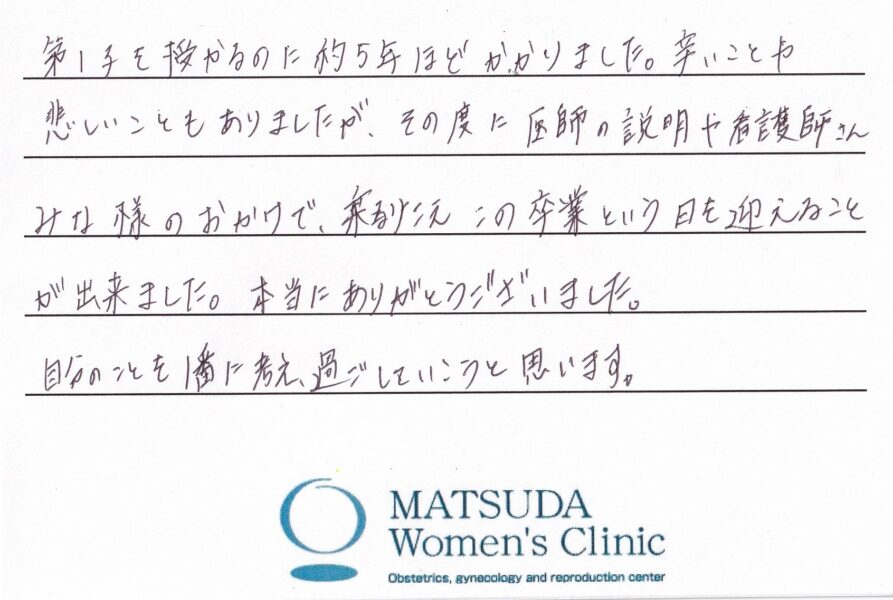 第1子を授かるのに約5年ほどかかりました。辛いことや
悲しいこともありましたが、その度に医師の説明や看護師さん
みな様のおかげで、乗りこえ この卒業という日を迎えること
が出来ました。本当にありがとうございました。
自分のことを1番に考え、過ごしていこうと思います。
MATSUDA
Women's Clinic
Obstetrics, gynecology and reproduction center